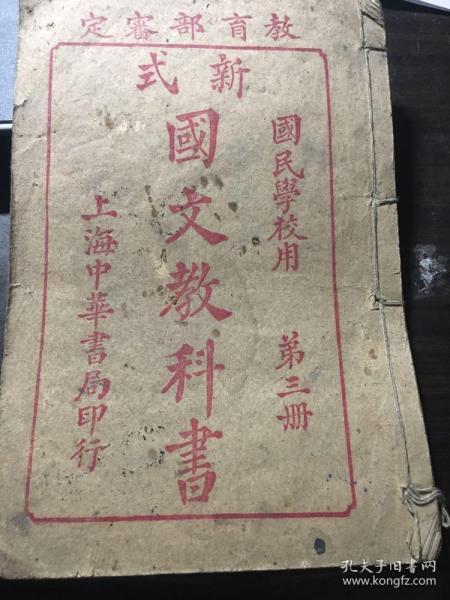 教育部審定
新式
國民學校用 第三册
國文教科書
上海中華書局印行
孔夫子旧书网
www.kongfz.com